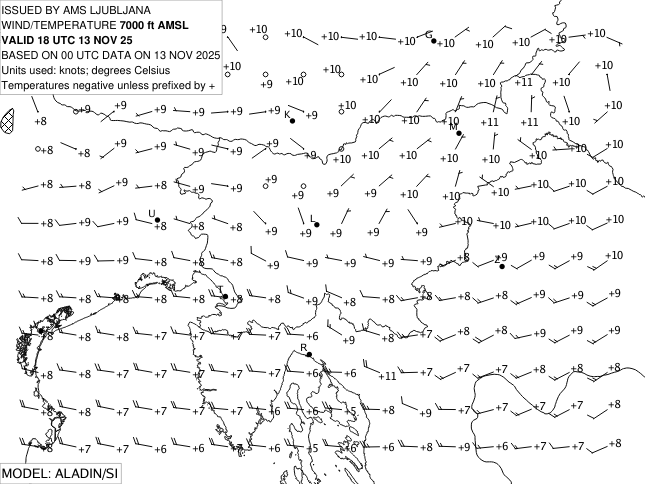 ISSUED BY AMS LJUBLJANA
WIND/TEMPERATURE 7000 ft AMSL
VALID 18 UTC 13 NOV 25
BASED ON 00 UTC DATA ON 13 NOV 2025
Units used: knots; degrees Celsius
Temperatures negative unless prefixed by +
+10 +10 +10 +10 +10 G +10 +10 +10 +10
+10 +10 +10 +10 +10 +10 +10 +11 +10 +10
+8 +9 +9 +9 +9 +9 K +9 +10 +10 +10 +10 M +11 +11 +10 +10
+8 +8 +9 +9 +9 +9 +9 +10 +10 +10 +10 +10 +10 +10 +10
+8 +8 +9 +8 +9 +9 +9 +9 +10 +10 +10 +10 +10 +10 +10
+8 +9 +9 U +8 +8 +8 +9 L +9 +9 +9 +9 +10 +10 +10 +10 +10
+8 +9 +9 +8 +8 +8 +9 +9 +9 +9 +9 +8 Z +9 +9 +9 +10
+8 +8 +8 +8 +8 T +8 +8 +9 +8 +8 +8 +8 +8 +9 +9 +9
+8 +8 +8 +7 +7 +7 +7 +6 +9 +8 +7 +8 +8 +9 +9 +9
+8 +8 +7 +7 +7 +7 +7 R +6 +6 +11 +7 +7 +7 +8 +8 +8
+8 +8 +7 +7 +7 +7 +6 +6 +5 +8 +9 +7 +7 +7 +7 +8
+8 +7 +7 +7 +7 +7 +6 +5 +6 +6 +8 +9 +6 +7 +7 +8
MODEL: ALADIN/SI